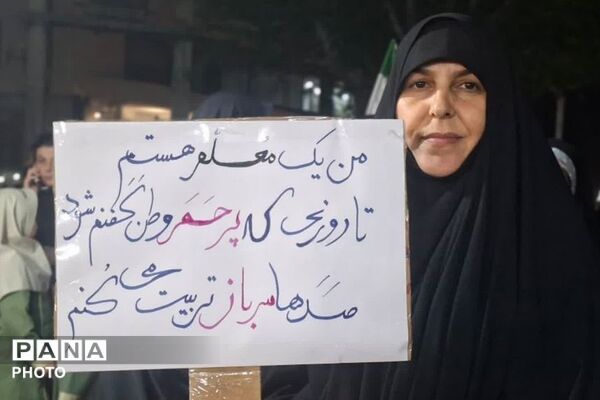 من یک معلم هستم
تا روزی که پرچم وطن کفنم شود
صدها سرباز تربیت می کنم
PANA
PHOTO